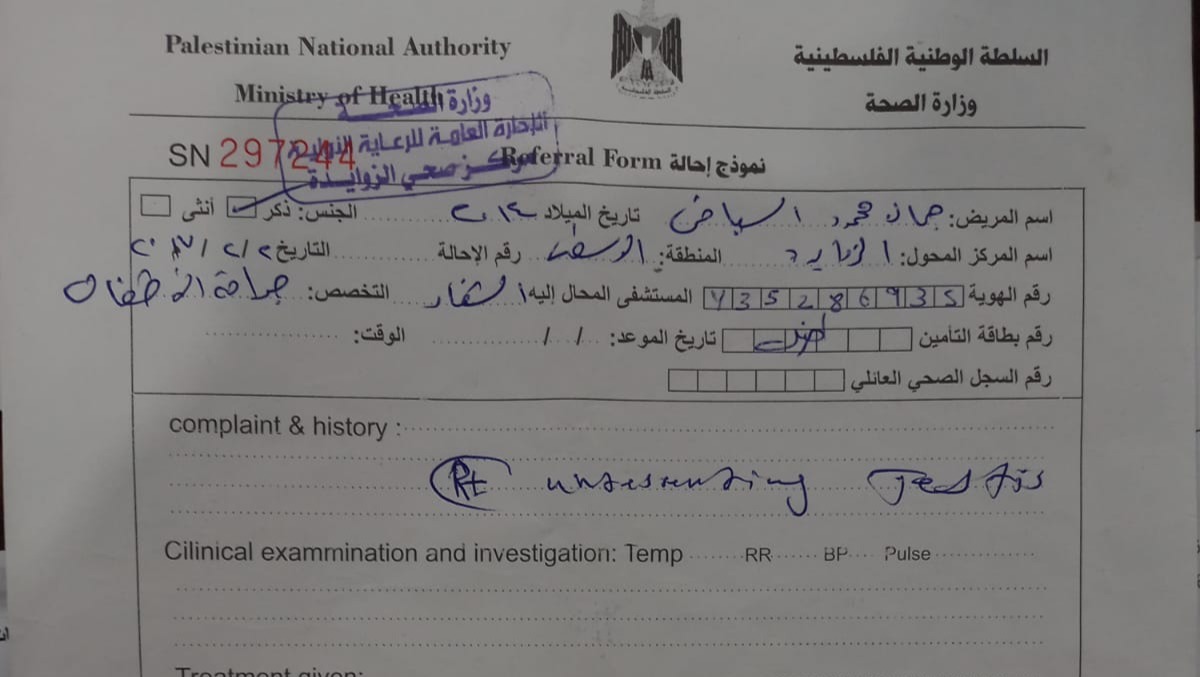 Palestinian National Authority
السلطة الوطنية الفلسطينية
Ministry of Health
وزارة الصحة
وزارة الصحة
الإدارة العامة للرعاية الأولية
مركز صحي الزوايدة
SN 297244 Referral Form نموذج إحالة
اسم المريض: محمود تاريخ الميلاد ٢٠١٤ الجنس: ذكر أنثى
اسم المركز المحول: الزوايدة المنطقة: الوسطى رقم الإحالة التاريخ
رقم الهوية المستشفى المحال إليه الشفاء التخصص: جراحة الأطفال
رقم بطاقة التأمين تاريخ الموعد: / / الوقت:
رقم السجل الصحي العائلي
complaint & history :
Rt undescending Testis
Cilinical exammination and investigation: Temp RR BP Pulse
Treatment given: